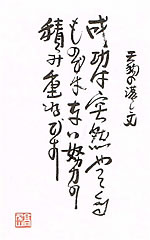 天狗の落し文
成功は突然やって来る
ものではない努力の
積み重ねです